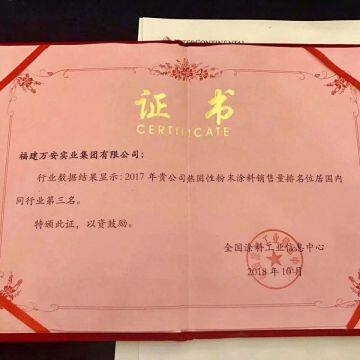 INTERCONTINENTAL
证书
CERTIFICATE
福建万安实业集团有限公司：
行业数据结果显示：2017 年贵公司热固性粉末涂料销售量排名位居国内
同行业第三名。
特颁此证，以资鼓励。
全国涂料工业信息中心
2018 年 10 月